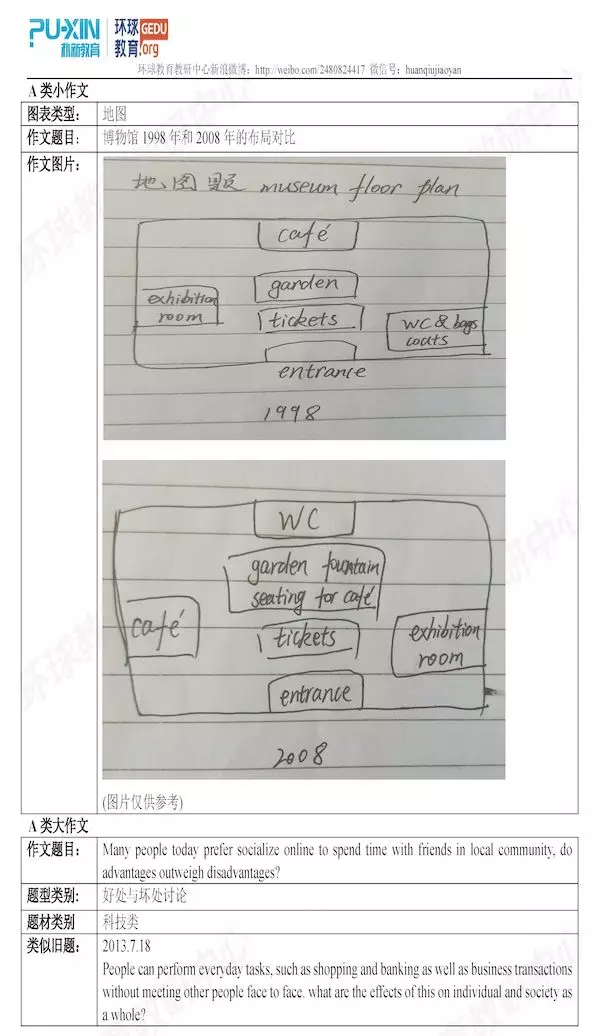 PU·XIN
朴新教育
环球 GEDU
教育.org
环球教育教研中心新浪微博：http://weibo.com/2480824417 微信号：huanqiujiaoyan
A 类小作文
图表类型： 地图
作文题目： 博物馆 1998 年和 2008 年的布局对比
作文图片：
地图题 museum floor plan
café
garden
exhibition
room
tickets
WC & bags
coats
entrance
1998
WC
garden fountain
seating for café
café
tickets
exhibition
room
entrance
2008
(图片仅供参考)
A 类大作文
作文题目： Many people today prefer socialize online to spend time with friends in local community, do
advantages outweigh disadvantages?
题型类别： 好处与坏处讨论
题材类别 科技类
类似旧题： 2013.7.18
People can perform everyday tasks, such as shopping and banking as well as business transactions
without meeting other people face to face. what are the effects of this on individual and society as
a whole?